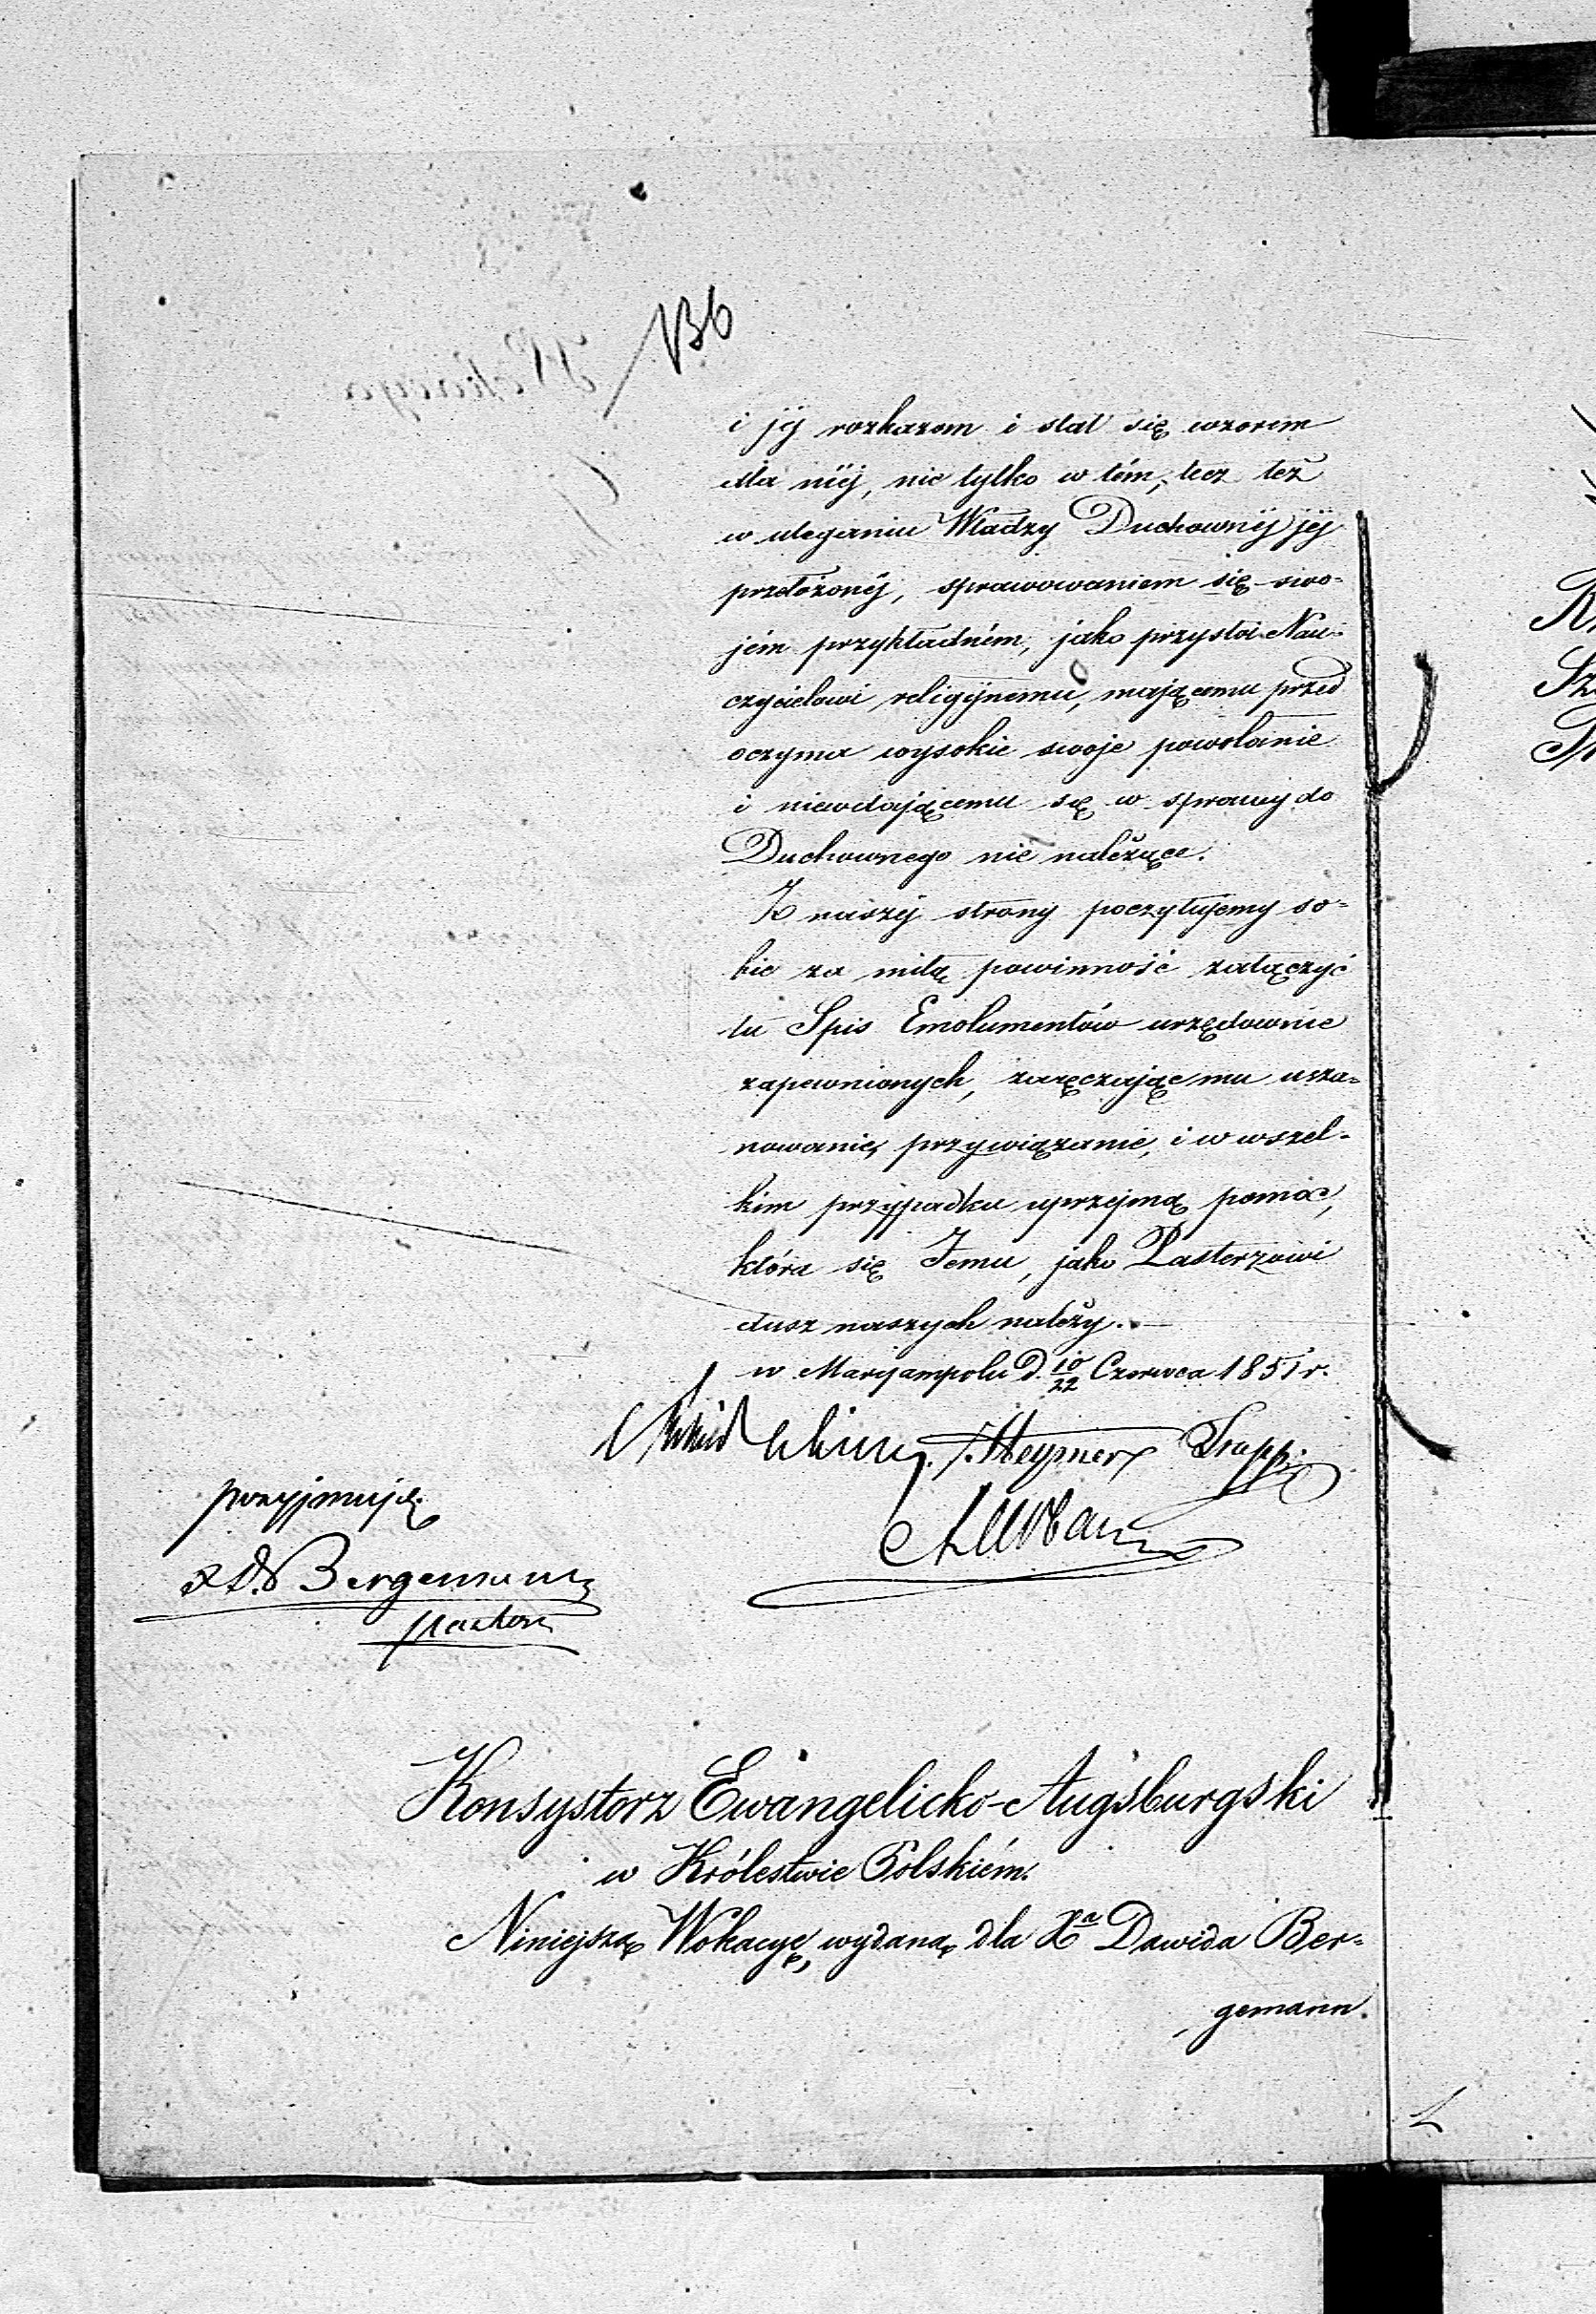 136
i jéj rozkazom i stał się wzorem
dla niéj, nie tylko w tém, lecz też
w uleganiu Władzy Duchownéj jéj
przełożonéj, sprawowaniem się swo-
jém przykładném, jako przystoi Nau-
czycielowi religijnemu, mającemu przed
oczyma wysokie swoje powołanie
i niewdającemu się w sprawy do
Duchownego nie należące.
Z naszéj strony poczytujemy so-
bie za miłą powinność załączyć
tu Spis Emolumentów urzędownie
zapewnionych, zaręczając mu usza-
nowanie, przywiązanie, i w wszel-
kim przypadku uprzejmą pomoc,
która się Jemu, jako Pasterzowi
dusz naszych należy. —
w Maryampolu D. 10/22 Czerwca 1851 r.
Heymer Trapp
przyjmuję
Bergemann
pastor
Konsystorz Ewangelicko-Augsburgski
w Królestwie Polskiém.
Niniejszą Wokacyę, wydaną dla Xa Dawida Ber-
gemann.